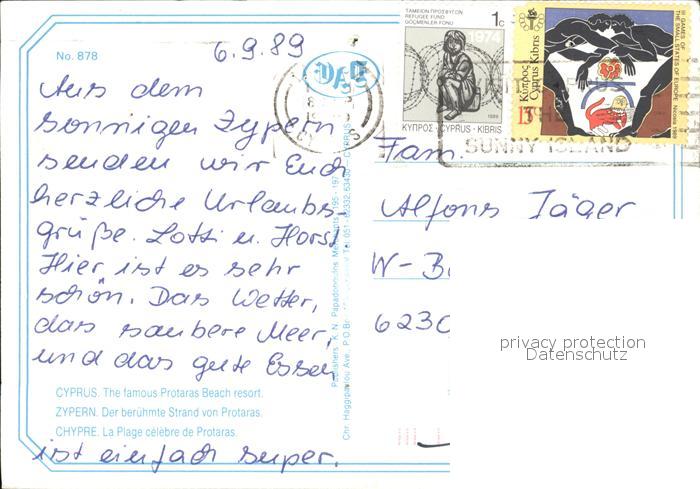 No. 878
6.9.89
Aus dem
sonnigen Zypern
senden wir Euch
herzliche Urlaubs-
grüße. Lotti u. Horst
Hier ist es sehr
schön. Das Wetter,
das saubere Meer,
und das gute Essen
CYPRUS. The famous Protaras Beach resort.
ZYPERN. Der berühmte Strand von Protaras.
CHYPRE. La Plage célèbre de Protaras.
ist einfach super.
Publishers K. N. Papadopoulos
Chr Haggipavlou Ave., P.O.
CYPRUS
ΤΑΜΕΙΟΝ ΠΡΟΣΦΥΓΩΝ
REFUGEE FUND
GÖÇMENLER FONU
1c
1974
1989
ΚΥΠΡΟΣ · CYPRUS · KIBRIS
Κύπρος
Cyprus Kıbrıs
13
III GAMES OF
THE SMALL STATES OF EUROPE Nicosia 1989
SUNNY ISLAND
Fam.
Alfons Jäger
W-
6230
privacy protection
Datenschutz